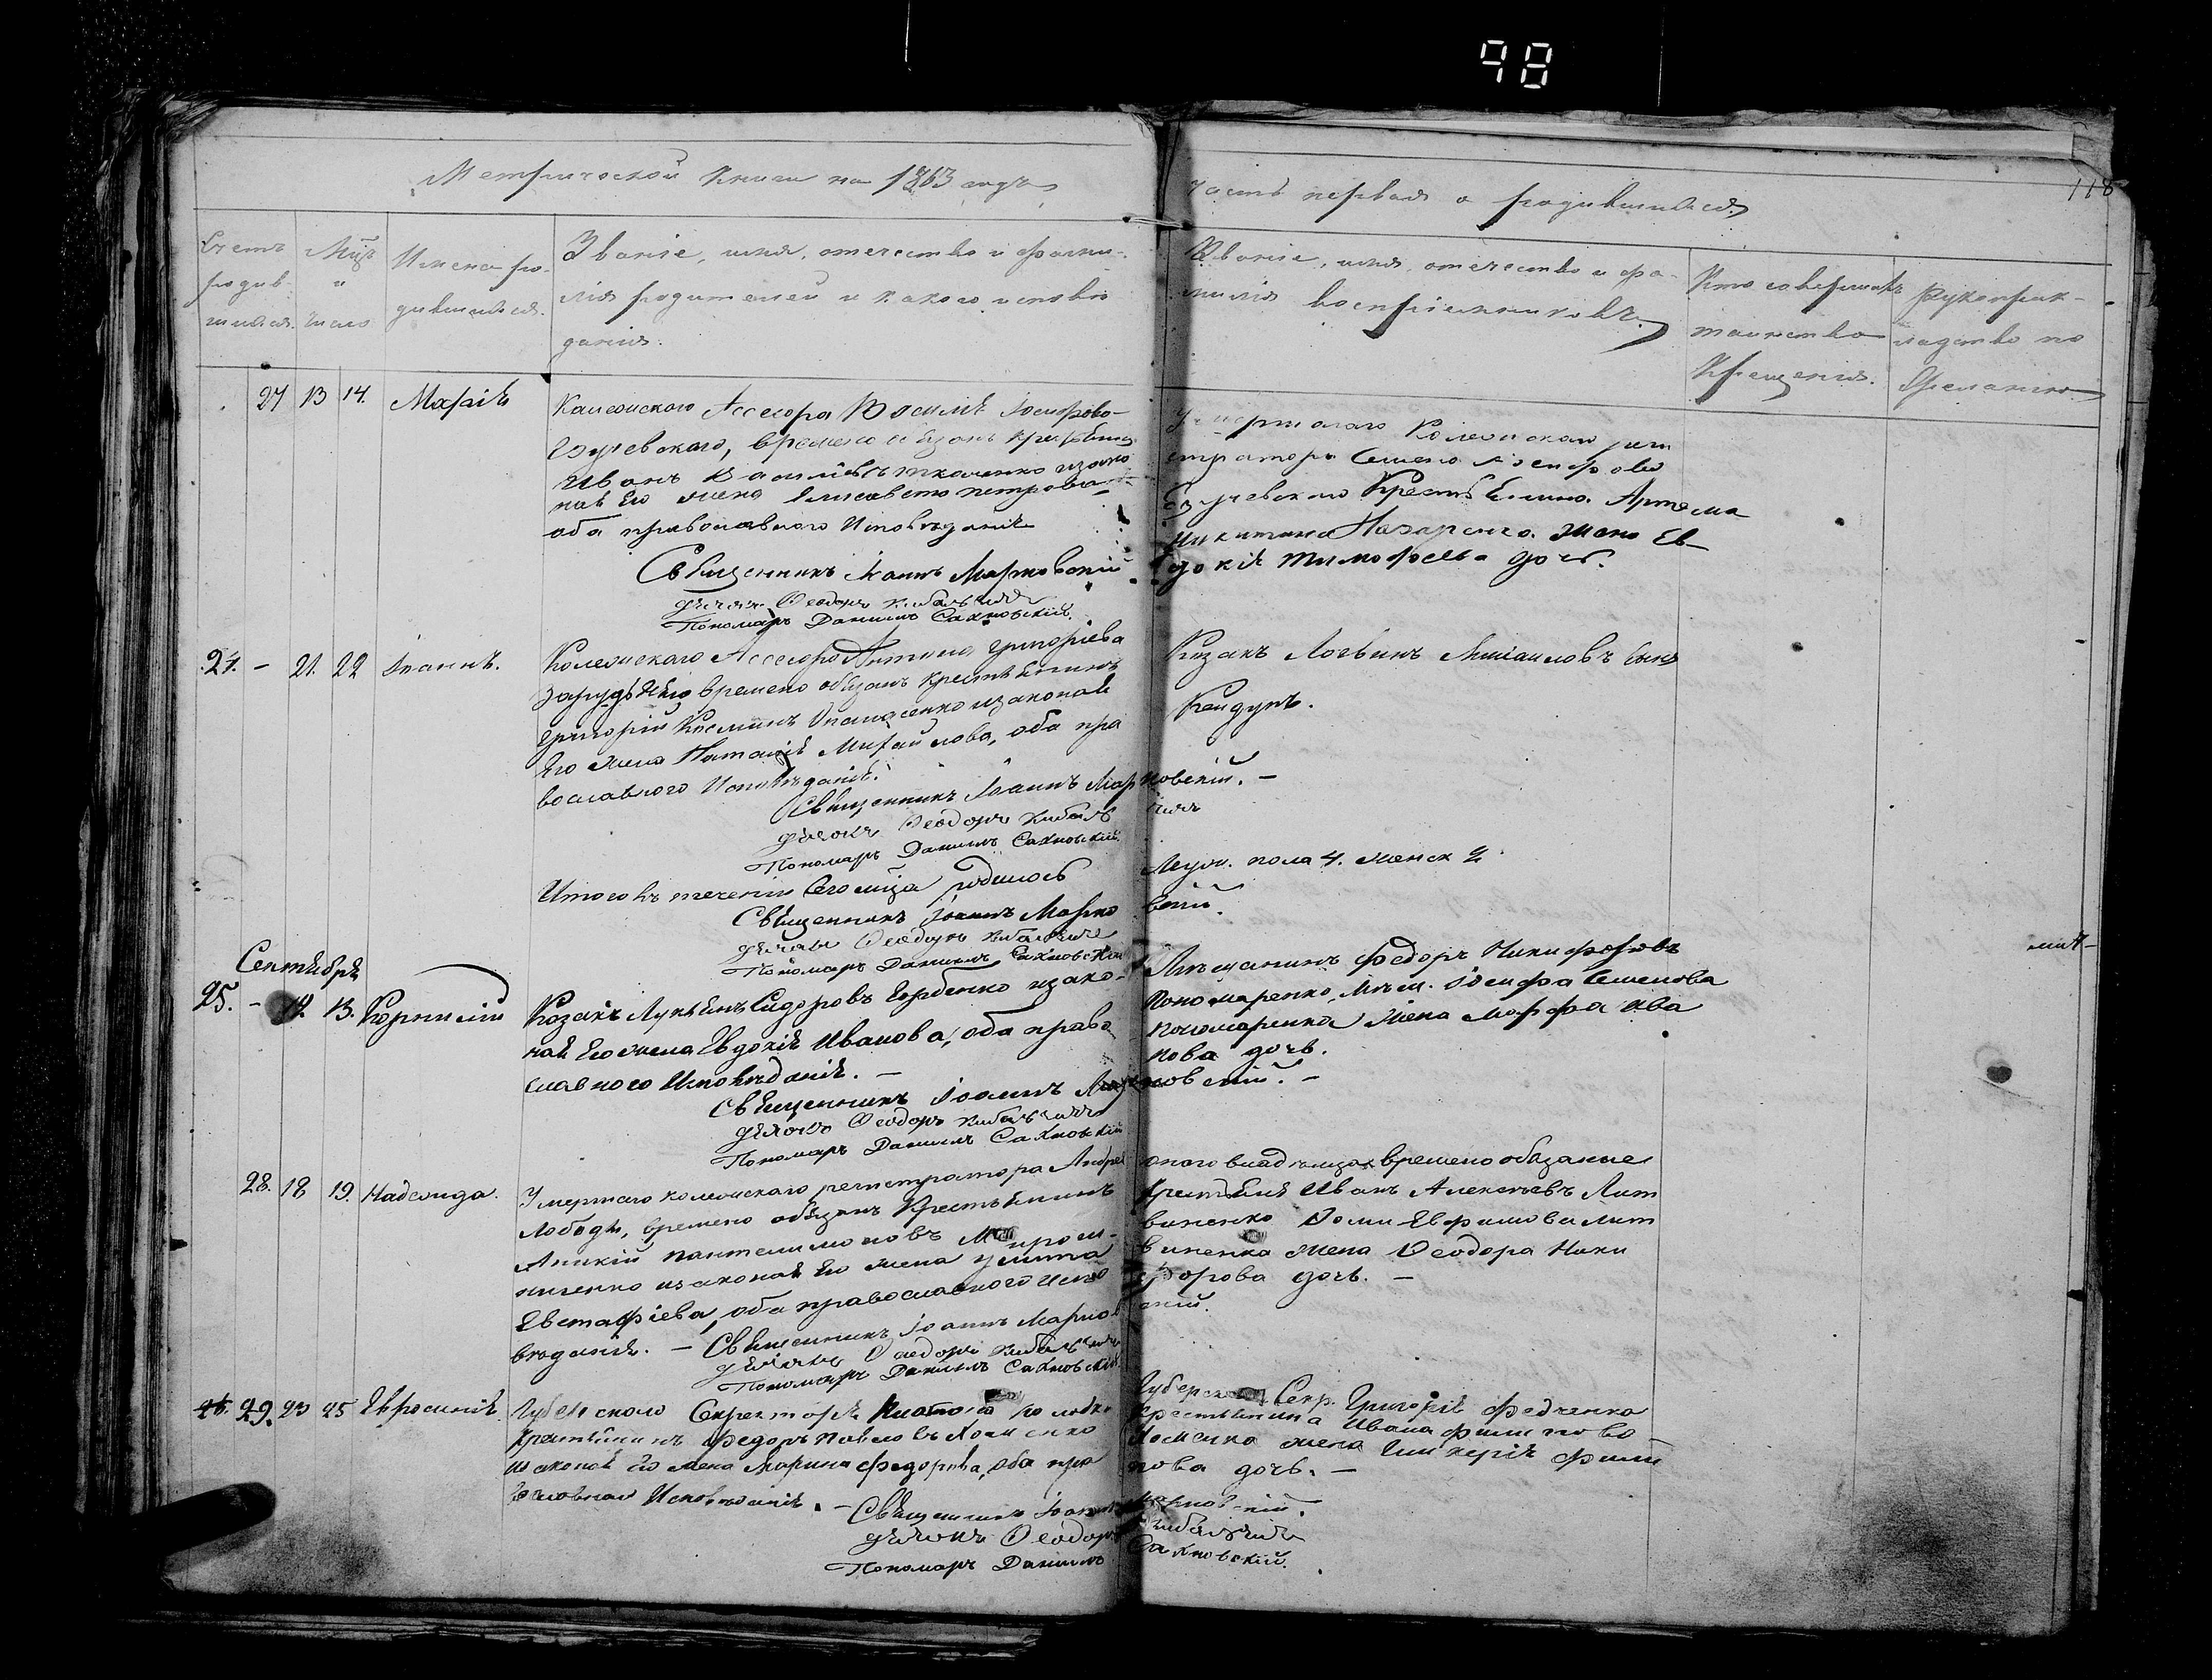 98
118
Метрической книги на 1863 годъ
часть первая о родившихся
Счетъ родив-шихся.
Мцъ и число
Имена ро-дившихся.
Званіе, имя, отечество и фами-
лія родителей и какого исповѣ
данія.
Званіе, имя, отечество и фа-
милія воспріемниковъ.
Кто совершалъ
таинство
Крещенія.
Рукоприк-
ладство по
желанію
27 13 14. Марія
Колежскаго Ассесора Василія Іосифово-
временно обязан. крестьянинъ
Иванъ Василіевъ Ткаченко изако
ная его жена Елисавета Петрова
оба православного Исповѣданія
Священникъ Іоаннъ Марковскій
дячокъ Феодоръ Кибальчичъ
Пономарь Даніилъ Сахновскій.
Умершаго Колежскаго реги
стратора Семена Іосифова
Крестьянина Артема
Никитина Назаренко жена Ев-
докія Тимофеева дочь.
24. - 21. 22 Іоаннъ.
Колежскаго Ассесора Антона Григоріева
временно обязан. крестьянинъ
Григорій Космин Опанасенко изаконая
его жена Наталія Михайлова, оба пра
вославного Исповѣданія.
Священникъ Іоаннъ Марковскій. -
дячокъ Феодоръ Кибальчичъ
Пономарь Даніилъ Сахновскій.
Козакъ Логвинъ Михаиловъ сынъ
Итого въ теченіи сего мца родилось
Муж. пола 4. женск 2
Священникъ Іоаннъ Марковскій.
дячокъ Феодоръ Кибальчичъ
Пономарь Даніилъ Сахновскій
Сентябрь
25. - 12. 13. Корнилій
Козакъ Лукьянъ Сидоровъ изако-
ная его жена Евдокія Иванова, оба право
славного Исповѣданія. -
Священникъ Іоаннъ Марковскій. -
дячокъ Феодоръ Кибальчичъ
Пономарь Даніилъ Сахновскій
Мѣщанинъ Федоръ Никифоровъ
Пономаренко, Мѣщ. Іосифа Семенова
Пономаренка жена Марфа Ива
нова дочь.
28. 18 19. Надежда.
Умершаго колежскаго регистратора Андрея
Лободы, временно обязан. крестьянинъ
Аникій Пантелимоновъ
изаконая его жена Улита
Евстафіева, оба православного Испо
вѣданія. - Священникъ Іоаннъ Марковскій.
дячокъ Феодоръ Кибальчичъ
Пономарь Даніилъ Сахновскій
оного владѣльца временно обязаные
Крестьяне Иванъ Алексѣевъ Лит
виненко Фомы Ефимова Лит
виненка жена Феодора Ники
форова дочь. -
29. 23 25 Евфросинія.
Губернского Секретаря
крестьянинъ Федоръ Павловъ Хоменко
изаконая его жена Марина Федорова, оба пра
вославного Исповѣданія. - Священникъ Іоаннъ Марковскій.
дячокъ Феодоръ Кибальчичъ
Пономарь Даніилъ Сахновскій.
Губернск Секр. Григорія Федченка
крестьянина Ивана Филипово
Хоменка жена Гликерія Филип
пова дочь. -